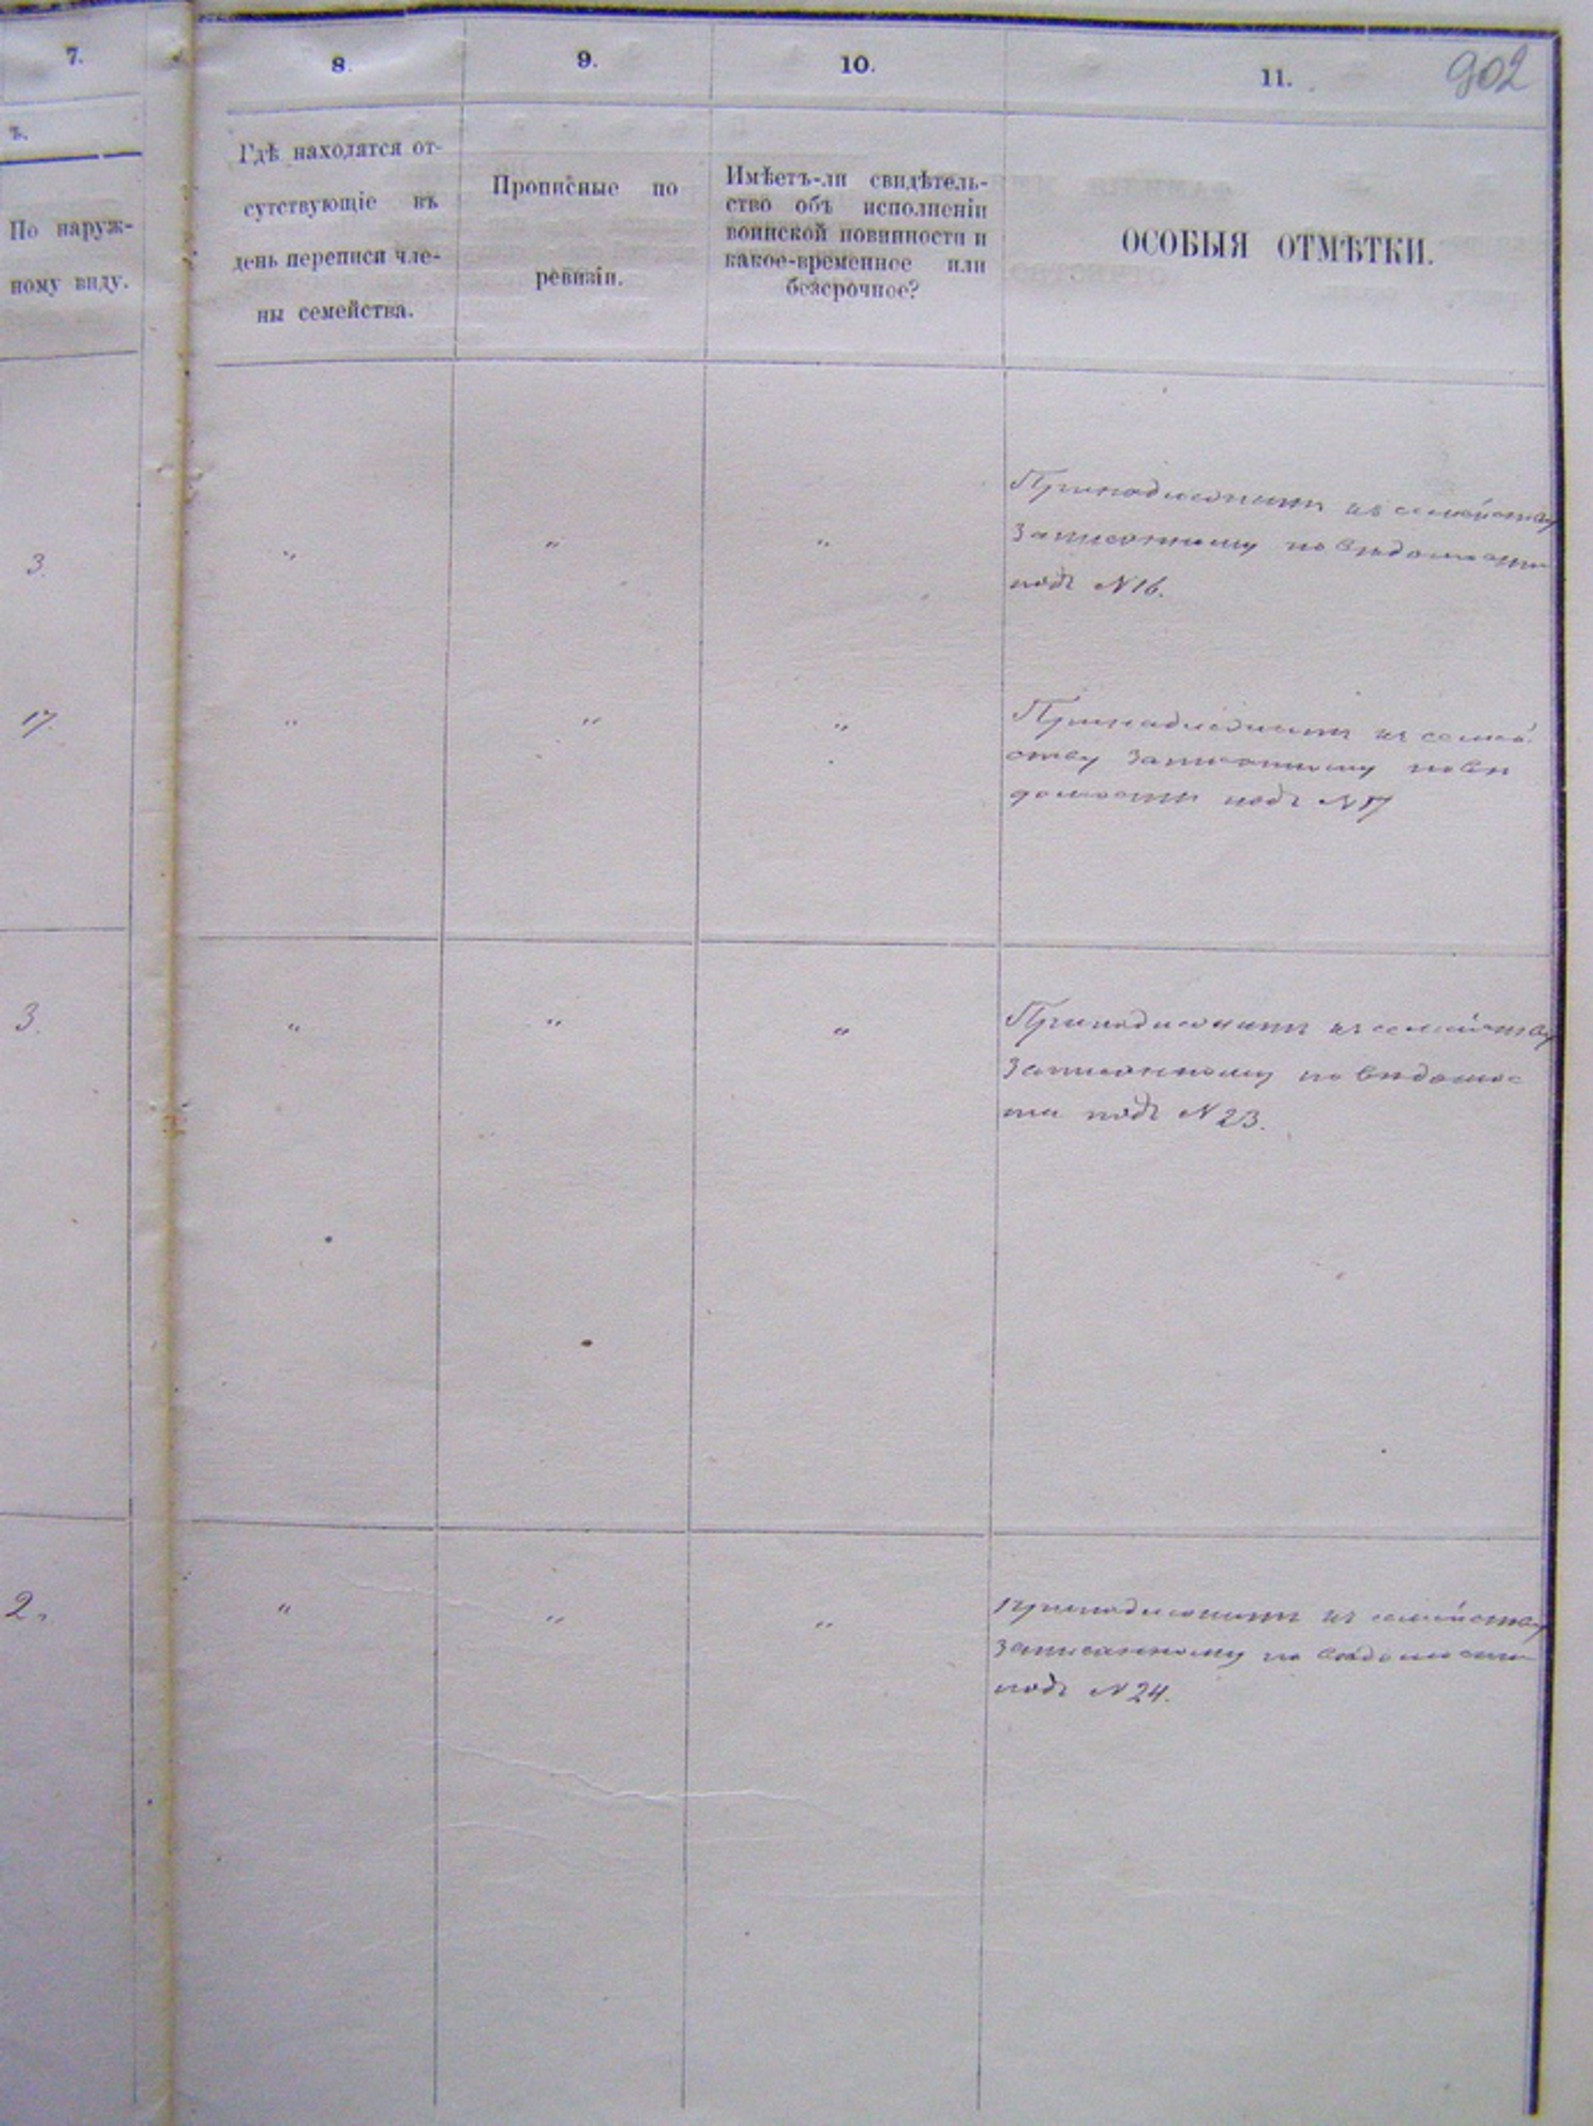 7.
8.
9.
10.
11.
902
ъ.
По наруж-
ному виду.
Гдѣ находятся от-
сутствующіе въ
день переписи чле-
ны семейства.
Прописные по
ревизіи.
Имѣетъ-ли свидѣтель-
ство объ исполненіи
воинской повинности и
какое-временное или
безсрочное?
ОСОБЫЯ ОТМѢТКИ.
3. " " " Принадлежитъ къ семейству
записанному по вѣдомости
подъ N 16.
17. " " " Принадлежитъ къ семей
ству записанному по вѣ
домости подъ N 17
3. " " " Принадлежитъ къ семейству
записанному по вѣдомос
ти подъ N 23.
2. " " " Принадлежитъ къ семейству
записанному по вѣдомости
подъ N 24.